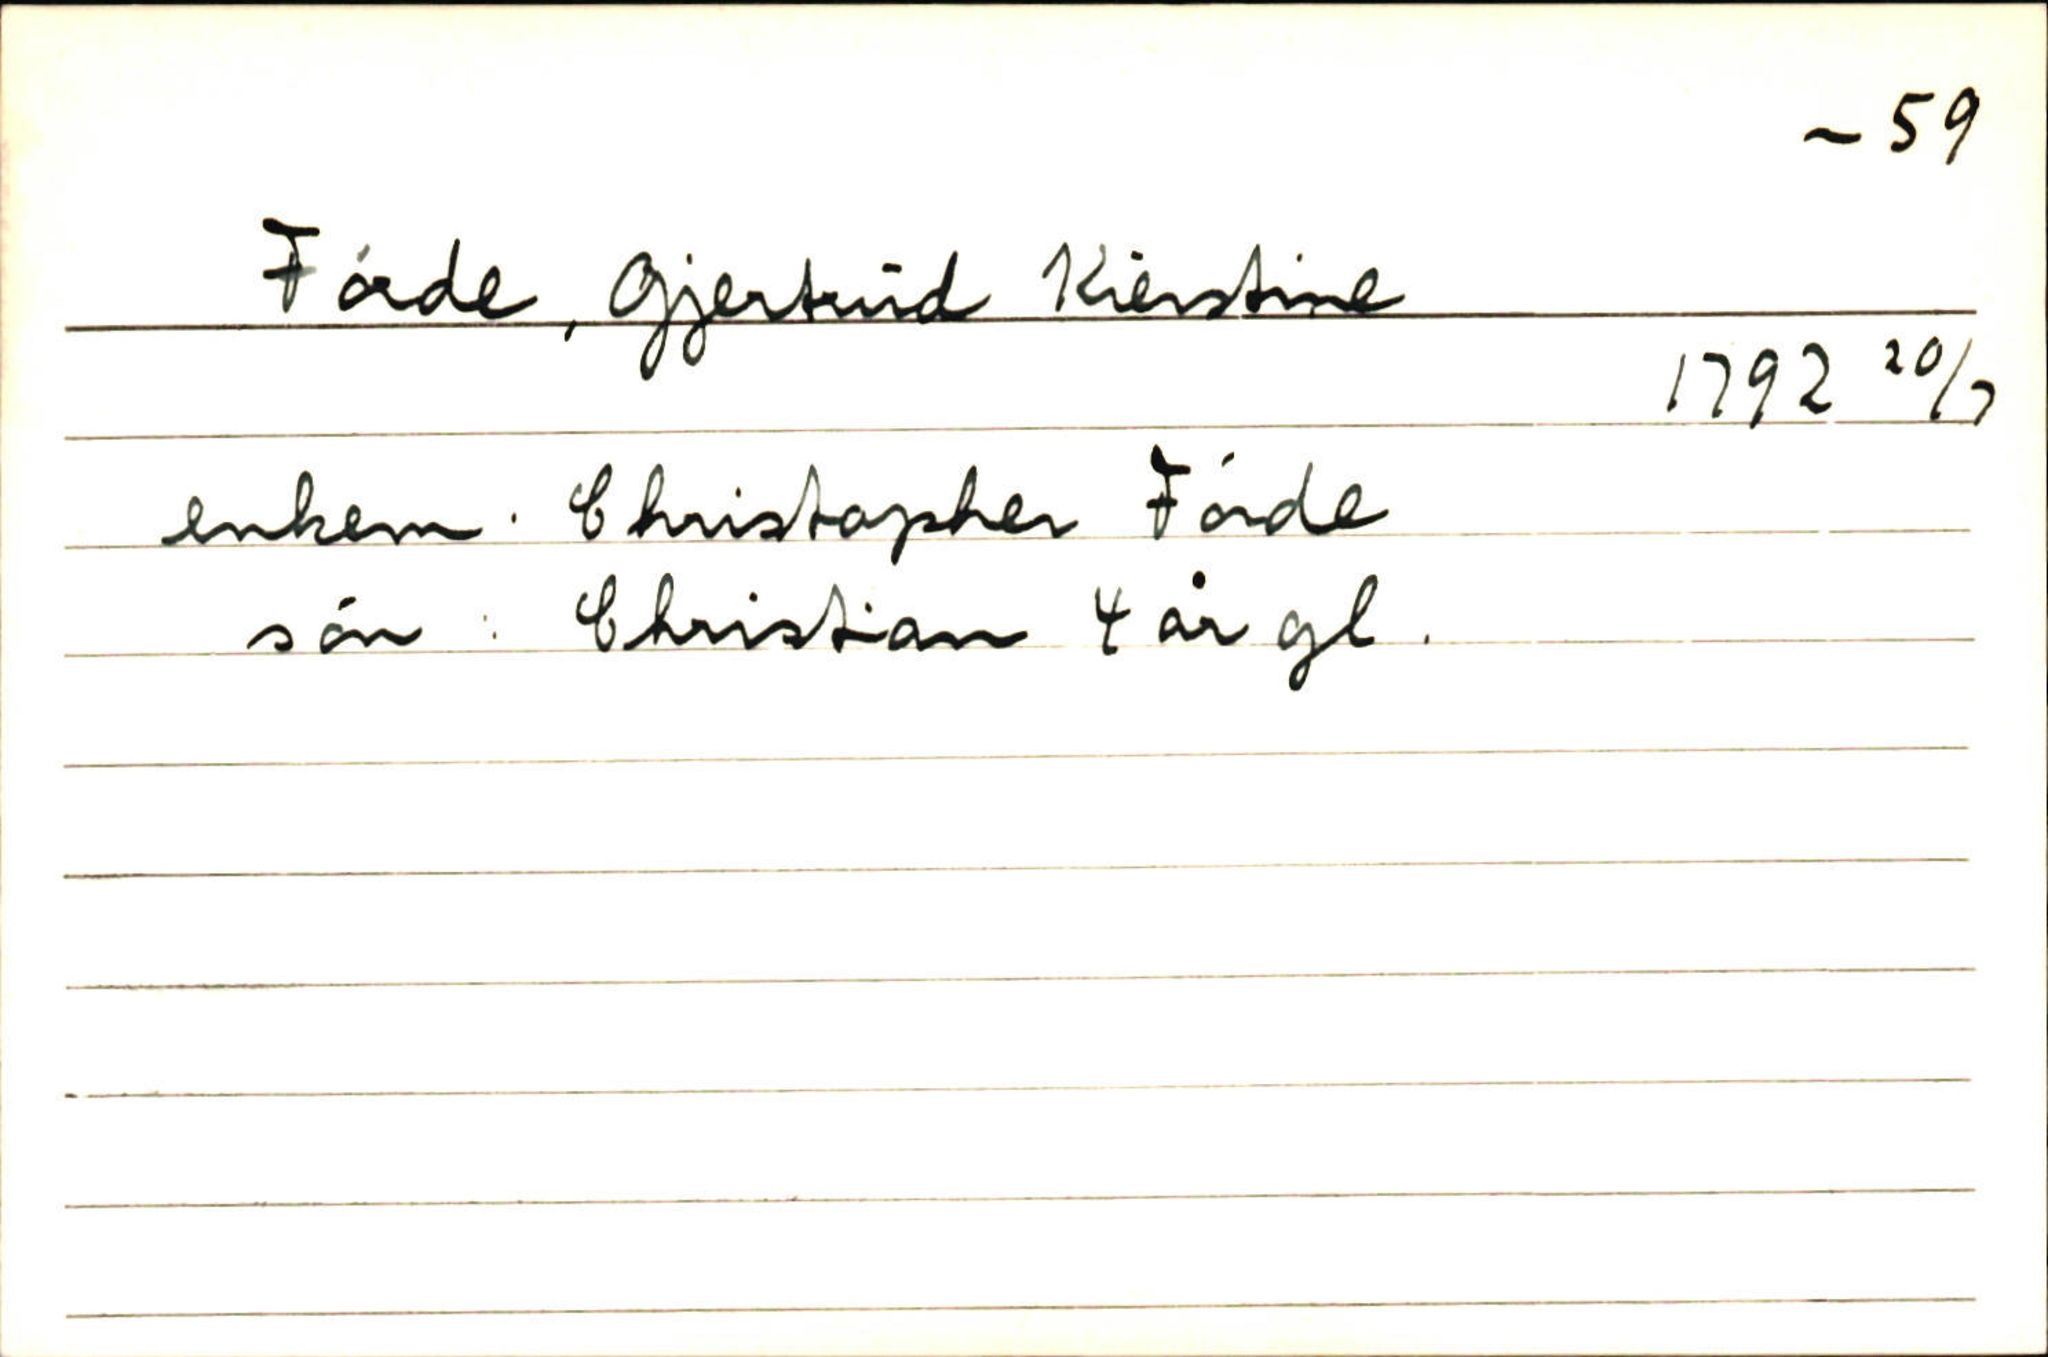 ~ 59
Förde, Gjertrud Kierstine
1792 20/7
enkem. Christopher Förde
sön : Christian 4 år gl.